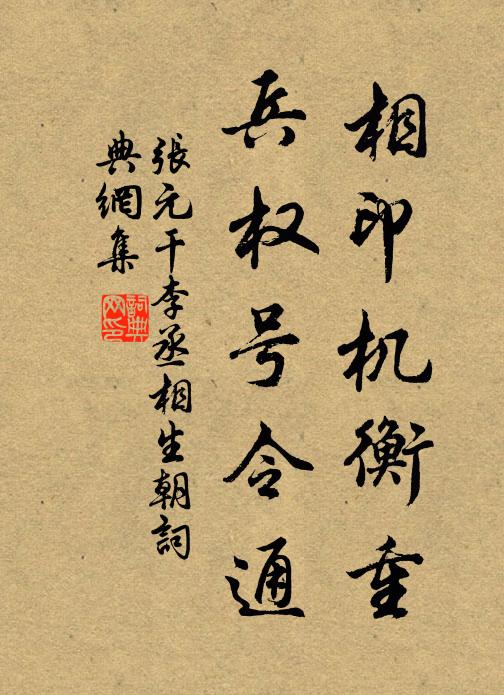 相印机衡重
兵权号令通
張元干李丞相生朝詞
典網集
詞典
网印